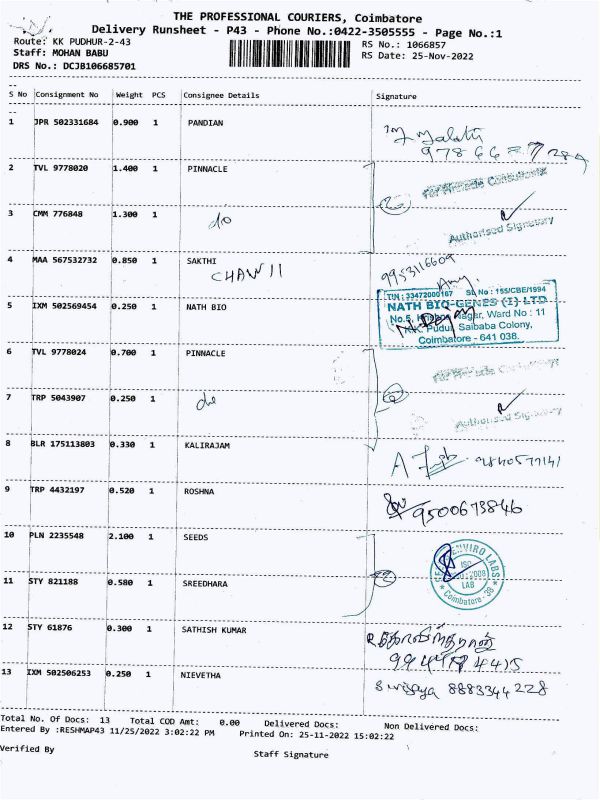 THE PROFESSIONAL COURIERS, Coimbatore
Delivery Runsheet - P43 - Phone No.:0422-3505555 - Page No.:1
Route: KK PUDHUR-2-43 RS No.: 1066857
Staff: MOHAN BABU RS Date: 25-Nov-2022
DRS No.: DCJB106685701
S No Consignment No Weight PCS Consignee Details Signature
1 JPR 502331684 0.900 1 PANDIAN
2 TVL 9778020 1.400 1 PINNACLE
Consultants
3 CMM 776848 1.300 1 do
Authorised Signatory
4 MAA 567532732 0.850 1 SAKTHI 9953116609
TIN : 33472000187 155/CBE/1994
5 IXM 502569454 0.250 1 NATH BIO NATH BIO-GENES (I) LTD
No.5, Nagar, Ward No : 11
K.K. Pudur, Saibaba Colony,
Coimbatore - 641 038.
6 TVL 9778024 0.700 1 PINNACLE
7 TRP 5043907 0.250 1 do
Authorised Signatory
8 BLR 175113803 0.330 1 KALIRAJAM
9 TRP 4432197 0.520 1 ROSHNA 9500673846
10 PLN 2235548 2.100 1 SEEDS
ENVIRO LABS
LAB
Coimbatore - 38
11 STY 821188 0.580 1 SREEDHARA
12 STY 61876 0.300 1 SATHISH KUMAR
13 IXM 502506253 0.250 1 NIEVETHA 8883344228
Total No. Of Docs: 13 Total COD Amt: 0.00 Delivered Docs: Non Delivered Docs:
Entered By :RESHMAP43 11/25/2022 3:02:22 PM Printed On: 25-11-2022 15:02:22
Verified By Staff Signature